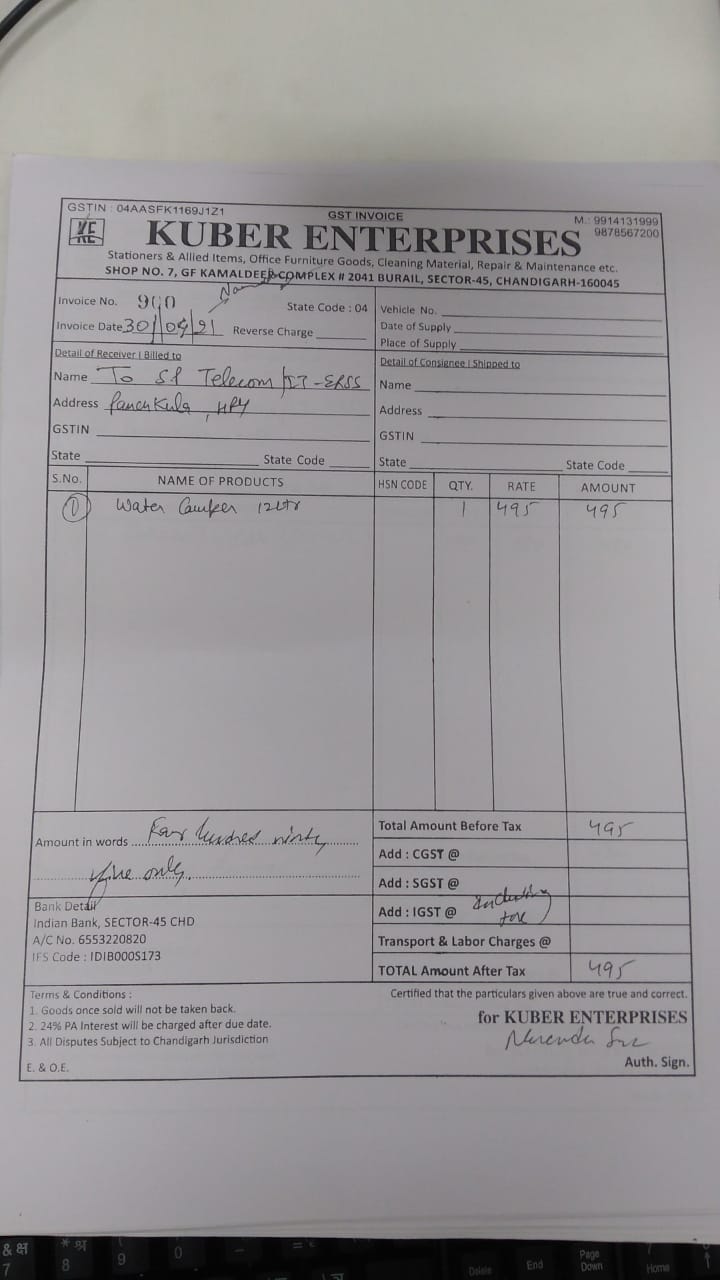 GSTIN : 04AASFK1169J1Z1
GST INVOICE
M.: 9914131999
9878567200
KE
KUBER ENTERPRISES
Stationers & Allied Items, Office Furniture Goods, Cleaning Material, Repair & Maintenance etc.
SHOP NO. 7, GF KAMALDEEP COMPLEX # 2041 BURAIL, SECTOR-45, CHANDIGARH-160045
Invoice No.
State Code : 04
Vehicle No.
Invoice Date 30/09/21 Reverse Charge
Date of Supply
Place of Supply
Detail of Receiver | Billed to
Detail of Consignee | Shipped to
Name To SP Telecom
Name
Address Panchkula, HRY
Address
GSTIN
GSTIN
State State Code
State State Code
S.No. NAME OF PRODUCTS HSN CODE QTY. RATE AMOUNT
1 Water Camper 12Ltr 1 495 495
Amount in words Four hundred ninty
five only.
Total Amount Before Tax 495
Add : CGST @
Add : SGST @
Add : IGST @ Including
tax
Transport & Labor Charges @
TOTAL Amount After Tax 495
Bank Detail
Indian Bank, SECTOR-45 CHD
A/C No. 6553220820
IFS Code : IDIB000S173
Terms & Conditions :
1. Goods once sold will not be taken back.
2. 24% PA Interest will be charged after due date.
3. All Disputes Subject to Chandigarh Jurisdiction
E. & O.E.
Certified that the particulars given above are true and correct.
for KUBER ENTERPRISES
Auth. Sign.
& क्ष
7
* श्र
8
9
0
Delete
End
Page
Down
Home